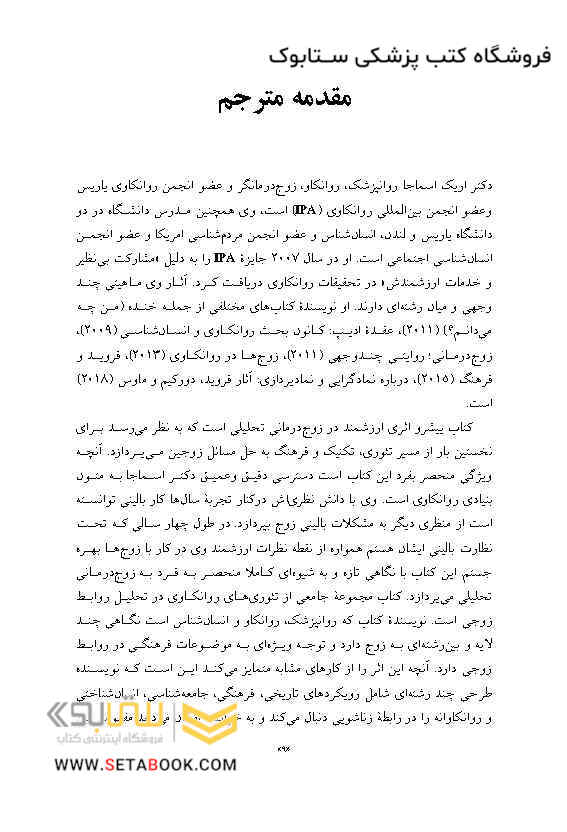 فروشگاه کتب پزشکی ستابوک
مقدمه مترجم
دکتر اریک اسماجا روانپزشک، روانکاو، زوج‌درمانگر و عضو انجمن روانکاوی پاریس
وعضو انجمن بین‌المللی روانکاوی (IPA) است، وی همچنین مدرس دانشگاه در دو
دانشگاه پاریس و لندن، انسان‌شناس و عضو انجمن مردم‌شناسی امریکا و عضو انجمن
انسان‌شناسی اجتماعی است. او در سال ۲۰۰۷ جایزهٔ IPA را به دلیل «مشارکت بی‌نظیر
و خدمات ارزشمندش» در تحقیقات روانکاوی دریافت کرد. آثار وی ماهیتی چند
وجهی و میان رشته‌ای دارند. او نویسندهٔ کتاب‌های مختلفی از جمله خنده (من چه
می‌دانم؟) (۲۰۱۱)، عقدهٔ ادیپ: کانون بحث روانکاوی و انسان‌شناسی (۲۰۰۹)،
زوج‌درمانی؛ روایتی چندوجهی (۲۰۱۱)، زوج‌ها در روانکاوی (۲۰۱۳)، فروید و
فرهنگ (۲۰۱۵)، درباره نمادگرایی و نمادپردازی: آثار فروید، دورکیم و ماوس (۲۰۱۸)
است.
کتاب پیشرو اثری ارزشمند در زوج‌درمانی تحلیلی است که به نظر می‌رسد برای
نخستین بار از مسیر تئوری، تکنیک و فرهنگ به حل مسائل زوجین می‌پردازد. آنچه
ویژگی منحصر بفرد این کتاب است دسترسی دقیق وعمیق دکتر اسماجا به متون
بنیادی روانکاوی است. وی با دانش نظری‌اش درکنار تجربهٔ سال‌ها کار بالینی توانسته
است از منظری دیگر به مشکلات بالینی زوج بپردازد. در طول چهار سالی که تحت
نظارت بالینی ایشان هستم همواره از نقطه نظرات ارزشمند وی در کار با زوج‌ها بهره
جستم. این کتاب با نگاهی تازه و به شیوه‌ای کاملا منحصر به فرد به زوج‌درمانی
تحلیلی می‌پردازد. کتاب مجموعهٔ جامعی از تئوری‌های روانکاوی در تحلیل روابط
زوجی است. نویسندهٔ کتاب که روانپزشک، روانکاو و انسان‌شناس است نگاهی چند
لایه و بین‌رشته‌ای به زوج دارد و توجه ویژه‌ای به موضوعات فرهنگی در روابط
زوجی دارد. آنچه این اثر را از کارهای مشابه متمایز می‌کند این است که نویسنده
طرحی چند رشته‌ای شامل رویکردهای تاریخی، فرهنگی، جامعه‌شناسی، انسان‌شناختی
و روانکاوانه را در رابطهٔ زناشویی دنبال می‌کند و به
ستابوک
فروشگاه اینترنتی کتاب
WWW.SETABOOK.COM
«۹»